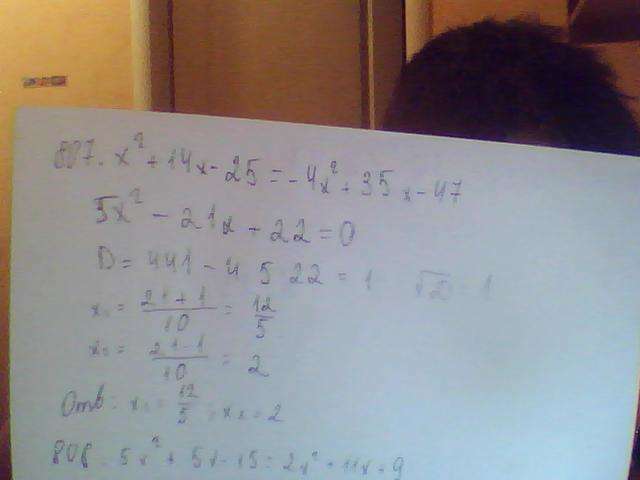 807. x² + 14x - 25 = -4x² + 35x - 47
5x² - 21x + 22 = 0
D = 441 - 4 5 22 = 1 √D = 1
x₁ = (21+1)/10 = 12/5
x₂ = (21-1)/10 = 2
Отв: x₁ = 12/5; x₂ = 2
808. 5x² + 5x - 15 = 2x² + 11x + 9